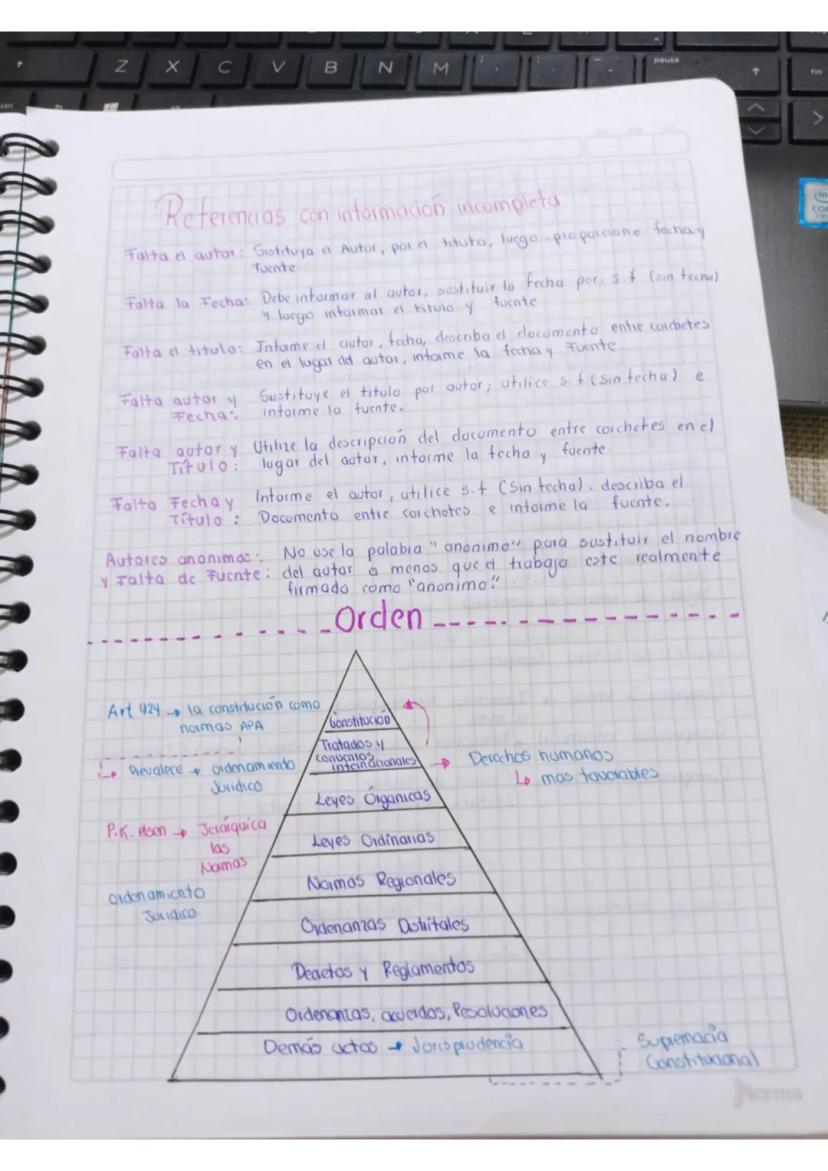 Z X C V B N M
pausa
fin
Referencias con información incompleta
Falta el autor: Sustituya el Autor, por el titulo, luego proporcione fecha y
fuente
Falta la Fecha: Debe informar al autor, sustituir la fecha por s.f (sin fecha)
y luego informar el titulo y fuente
Falta el titulo: Informe el autor, fecha, describa el documento entre corchetes
en el lugar del autor, informe la fecha y Fuente.
Falta autor y Fecha: Sustituye el titulo por autor; utilice s.f (sin fecha) e
informe la fuente.
Falta autor y Título: Utilize la descripción del documento entre corchetes en el
lugar del autor, informe la fecha y fuente
Falta Fecha y Título: Informe el autor, utilice s.f (Sin fecha). describa el
Documento entre corchetes e informe la fuente.
Autores anonimos: No use la palabra "anonimo" para sustituir el nombre
y Falta de Fuente: del autor a menos que el trabajo este realmente
firmado como "anonimo."
Orden
Art 424 → la constitución como
normas APA
Prevalece → ordenamiento
Jurídico
P.K. elsen → Jerárquica
las
Normas
Ordenamiento
Jurídico
Constitución
Tratados y
convenios
internacionales
→ Derechos humanos
↳ mas favorables
Leyes Órganicas
Leyes Ordinarias
Normas Regionales
Ordenanzas Distritales
Decretos y Reglamentos
Ordenanzas, acuerdos, Resoluciones
Demás actos → Jurisprudencia
Supremacía
Constitucional
Norma